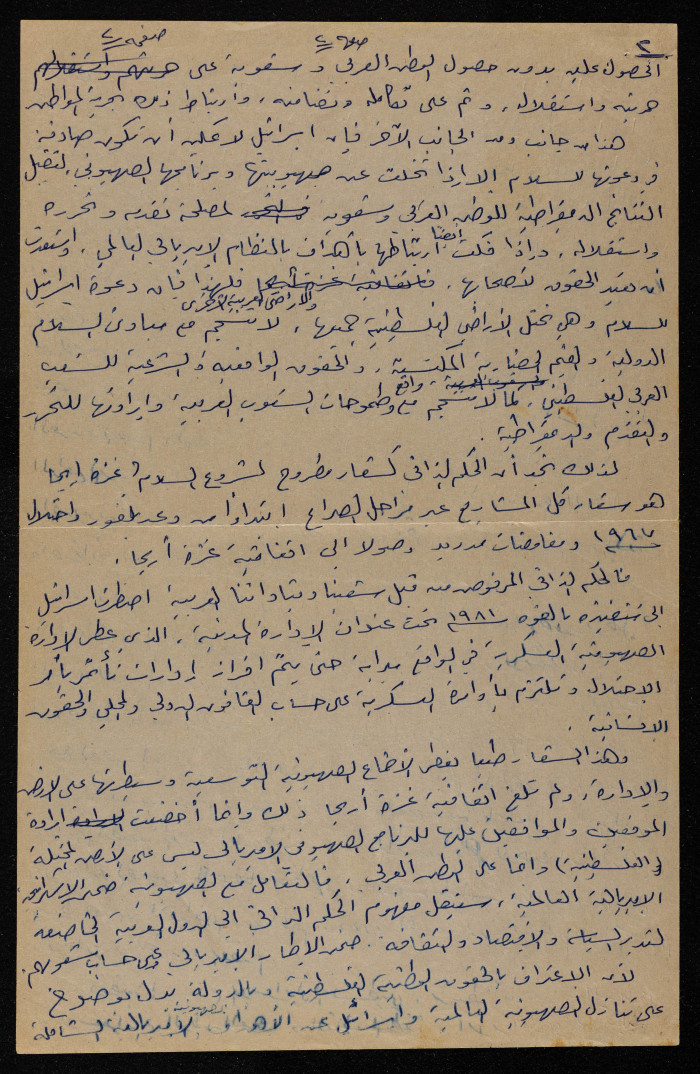 ٢ صفحة ٢ صفحة ٢
الحصول عليه بدون حصول الوطن العربي وشعوبه على حريتهم واستقلالهم
حريته واستقلاله، وثم على تكامله وتضامنه، وارتباط ذلك بحرية المواطن
هذا من جانب ومن الجانب الآخر فإن اسرائيل لا يمكن أن تكون صادقة
في دعوتها للسلام إلا إذا تخلت عن صهيونيتها وبرنامجها الصهيوني، لتقبل
النتائج الديمقراطية للوطن العربي وشعوبه لمصلحة تقدمه وتحرره
واستقلاله، وإذا فكت أيضا ارتباطها بأهداف النظام الإمبريالي العالمي، واستعدت
أن تعيد الحقوق لأصحابها. فلهذا فإن دعوة اسرائيل
للسلام وهي تحتل الأراضي الفلسطينية جميعها والأراضي العربية الأخرى، لا تنسجم مع مبادئ السلام
الدولية والقيم الحضارية المكتسبة، والحقوق الواقعية والشرعية للشعب
العربي الفلسطيني، كما لا تنسجم مع واقع وطموحات الشعوب العربية وإرادتها للتحرر
والتقدم والديمقراطية.
لذلك نجد أن الحكم الذاتي كشعار مطروح لمشروع السلام غزة أريحا
هو شعار كل المشاريع عبر مراحل الصراع ابتداءا من وعد بلفور واحتلال
١٩٦٧ ومفاوضات مدريد وصولا الى اتفاقية غزة أريحا.
فالحكم الذاتي المرفوض من قبل شعبنا وقياداتنا العربية اضطرت اسرائيل
الى تنفيذه بالقوة ١٩٨١ تحت عنوان الإدارة المدنية، الذي يعطي الإدارة
الصهيونية العسكرية في الواقع بداية حتى يتم افراز إدارات تأتمر بأمر
الاحتلال وتلتزم بأوامره العسكرية على حساب القانون الدولي والمحلي والحقوق
الإنسانية.
وهذا الشعار طبعا يغطي الأطماع الصهيونية التوسعية وسيطرتها على الأرض
والإدارة، ولم تلغ اتفاقية غزة أريحا ذلك وإنما أخضعت إرادة
الموقعين والموافقين عليها للبرنامج الصهيوني الامبريالي ليس على الأرض المحتلة
(الفلسطينية) وإنما على الوطن العربي. فالتعامل مع الصهيونية ضمن الاستراتيجية
الإمبريالية العالمية، سينقل مفهوم الحكم الذاتي الى الدول العربية
لتدير السياسة والاقتصاد والثقافة ضمن الإطار الامبريالي وعلى حساب شعوبهم.
لأن الاعتراف بالحقوق الوطنية الفلسطينية وبالدولة يدل بوضوح
على تنازل الصهيونية العالمية واسرائيل عن الأهداف الصهيونية الامبريالية الشاملة